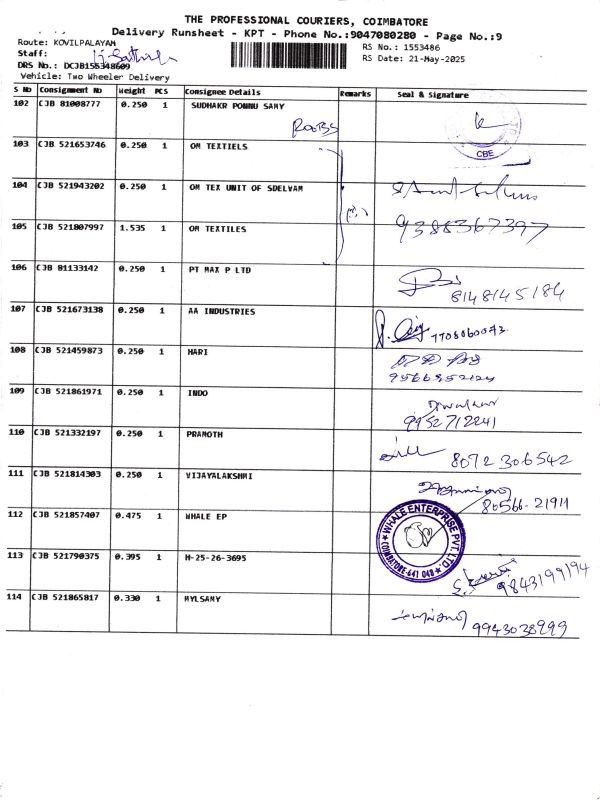 THE PROFESSIONAL COURIERS, COIMBATORE
Delivery Runsheet - KPT - Phone No.:9047080280 - Page No.:9
Route: KOVILPALAYAM
RS No.: 1553486
Staff:
RS Date: 21-May-2025
DRS No.: DCJB155348609
Vehicle: Two Wheeler Delivery
S No Consignment No Weight PCS Consignee Details Remarks Seal & Signature
102 CJB 81008777 0.250 1 SUDHAKR PONNU SAMY
CBE
103 CJB 521653746 0.250 1 OM TEXTIELS
104 CJB 521943202 0.250 1 OM TEX UNIT OF SDELVAM
105 CJB 521807997 1.535 1 OM TEXTILES
9388367397
106 CJB 81133142 0.250 1 PT MAX P LTD
8148145184
107 CJB 521673138 0.250 1 AA INDUSTRIES
7708060043
108 CJB 521459873 0.250 1 HARI
109 CJB 521861971 0.250 1 INDO
9952712241
110 CJB 521332197 0.250 1 PRAMOTH
8072306542
111 CJB 521814303 0.250 1 VIJAYALAKSHMI
80566-21911
112 CJB 521857407 0.475 1 WHALE EP
WHALE ENTERPRISE PVT.LTD.
COIMBATORE-641 048
113 CJB 521790375 0.395 1 H-25-26-3695
9843199194
114 CJB 521865817 0.330 1 MYLSAMY
9943038999